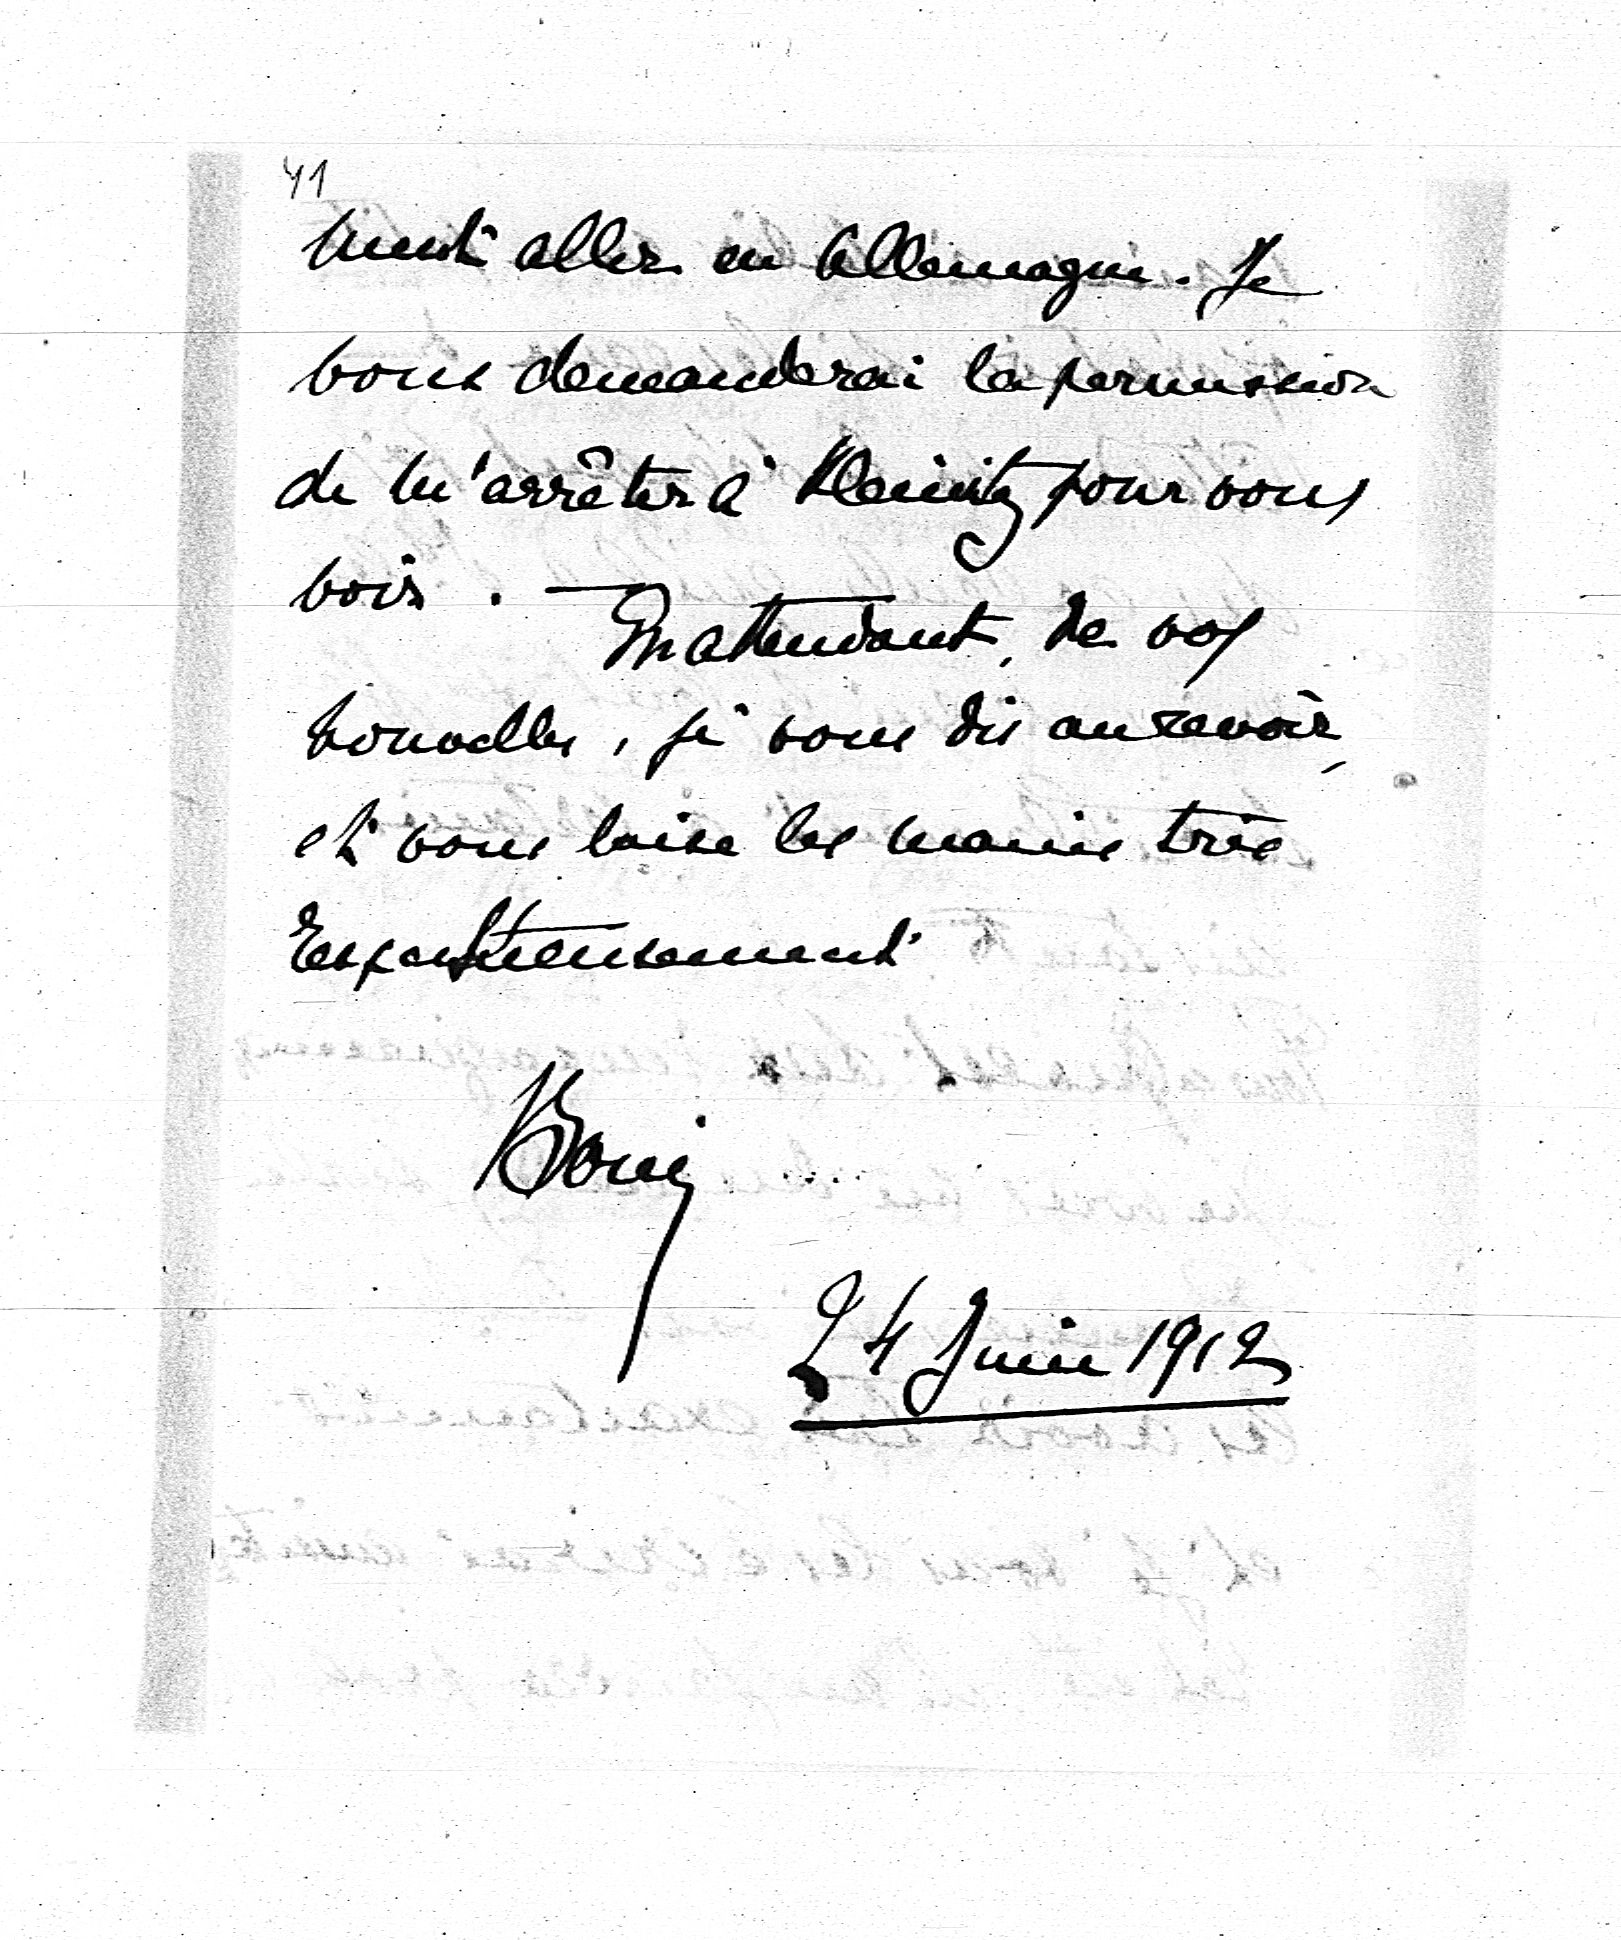 41
ment aller en Allemagne. Je
vous demanderai la permission
de m'arrêter à Kleinitz pour vous
voir. — En attendant, de vos
nouvelles, je vous dis au revoir,
et vous baise les mains très
respectueusement
24 Juin 1912